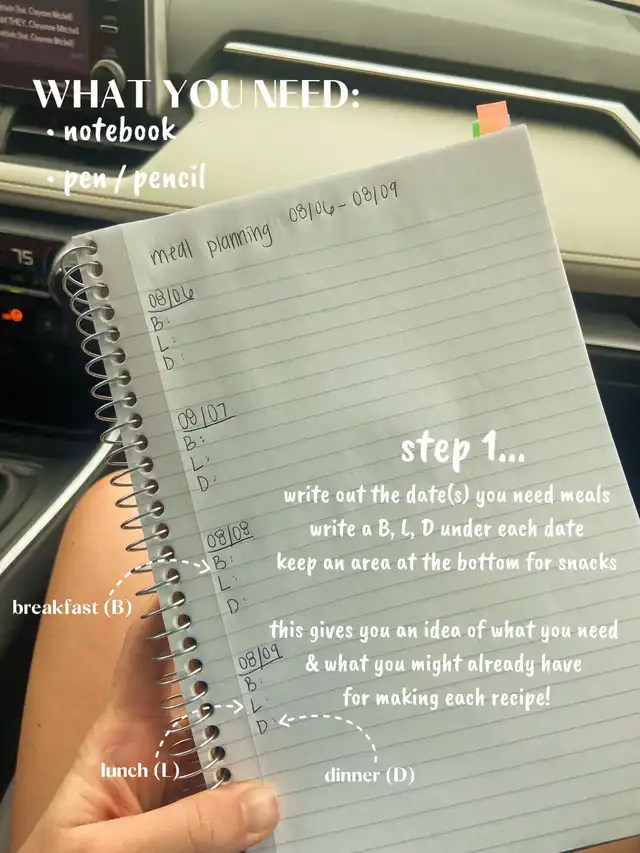 (feat. Cheyenne Mitchell)
THEY., Cheyenne Mitchell
(feat. Cheyenne Mitchell)
WHAT YOU NEED:
• notebook
• pen / pencil
meal planning 08/06 - 08/09
75
08/06
B:
L:
D:
08/07
B:
L:
D:
step 1...
write out the date(s) you need meals
write a B, L, D under each date
keep an area at the bottom for snacks
08/08
B:
L:
D:
breakfast (B)
this gives you an idea of what you need
& what you might already have
for making each recipe!
08/09
B:
L:
D:
lunch (L)
dinner (D)